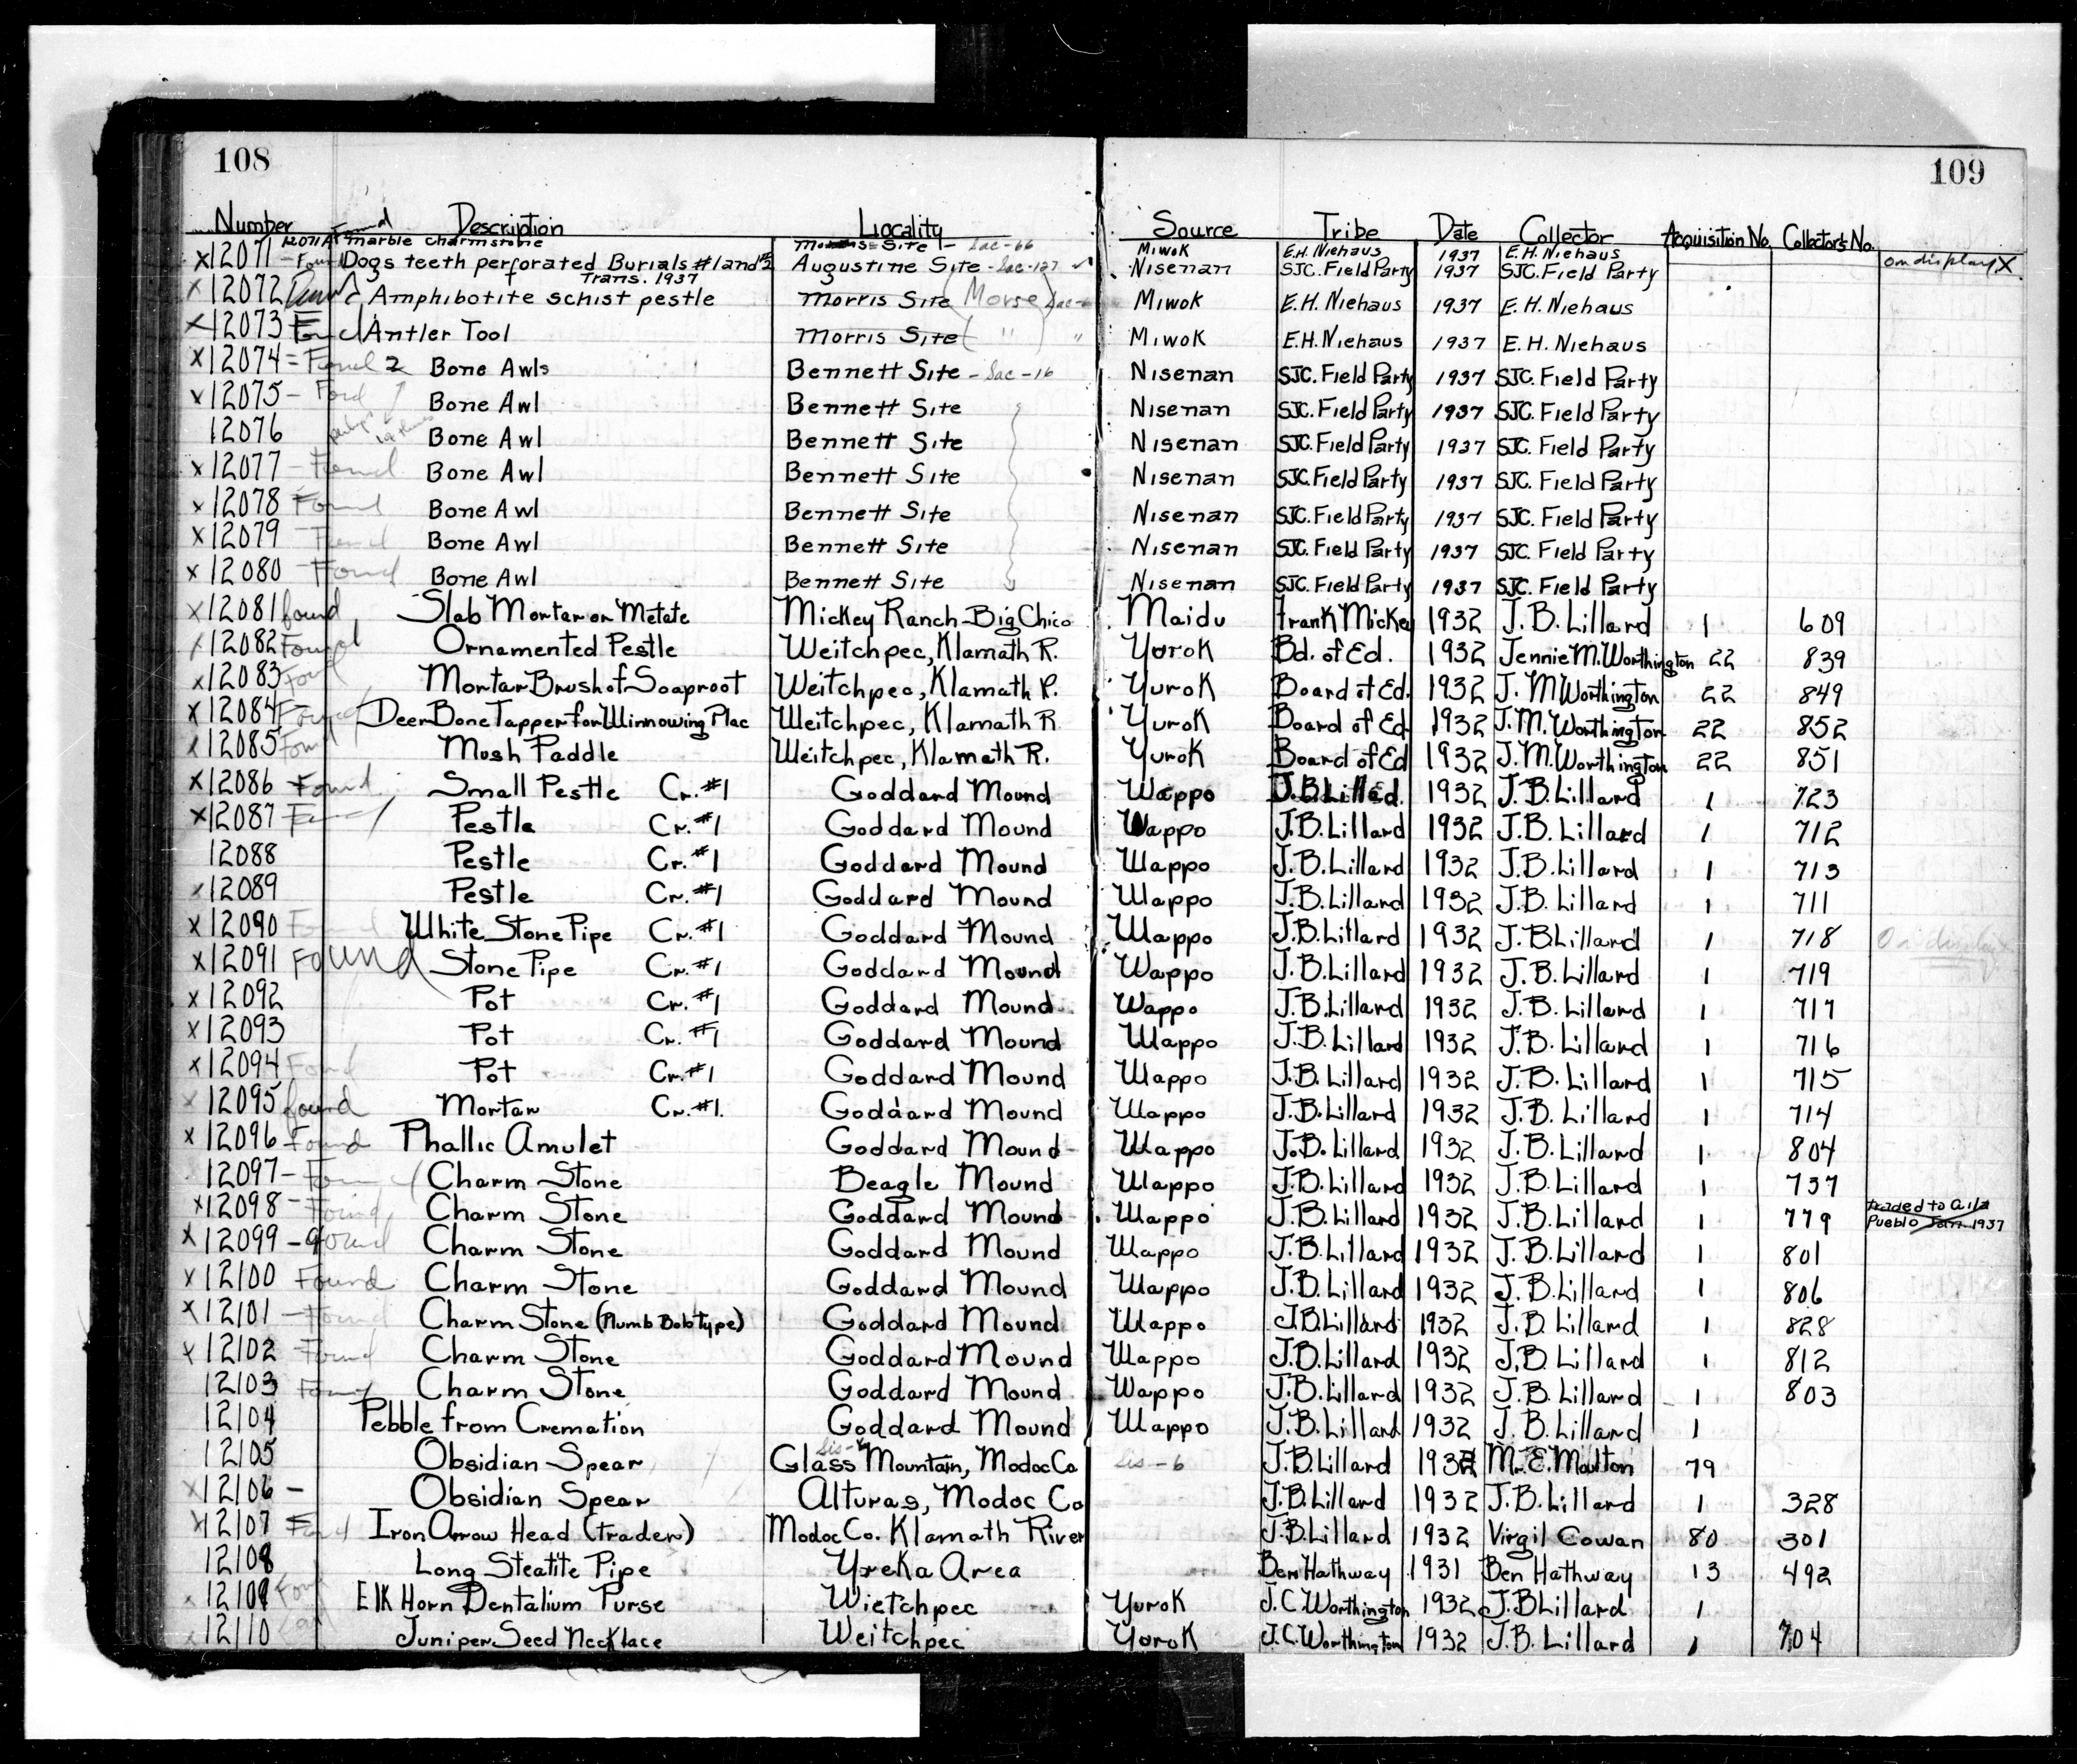 108
109
Number Found Description Locality Source Tribe Date Collector Acquisition No. Collector's No.
12071A marble charmstone Site - Sac-66 Miwok E.H. Niehaus 1937 E.H. Niehaus
x12071 - Found Dogs teeth perforated Burials #1 and #2 Augustine Site - Sac-127 ✓ Nisenan SJC. Field Party 1937 SJC. Field Party on display X
Trans. 1937
x12072 Amphibotite schist pestle Morris Site (Morse) Miwok E.H. Niehaus 1937 E.H. Niehaus
x12073 Found Antler Tool Morris Site ( " ) " Miwok E.H. Niehaus 1937 E.H. Niehaus
x12074 = Found 2 Bone Awls Bennett Site - Sac-16 Nisenan SJC. Field Party 1937 SJC. Field Party
x12075 - Bone Awl Bennett Site Nisenan SJC. Field Party 1937 SJC. Field Party
12076 Bone Awl Bennett Site Nisenan SJC. Field Party 1937 SJC. Field Party
x12077 - Found Bone Awl Bennett Site Nisenan SJC. Field Party 1937 SJC. Field Party
x12078 Found Bone Awl Bennett Site Nisenan SJC. Field Party 1937 SJC. Field Party
x12079 Found Bone Awl Bennett Site Nisenan SJC. Field Party 1937 SJC. Field Party
x12080 Found Bone Awl Bennett Site Nisenan SJC. Field Party 1937 SJC. Field Party
x12081 found Slab Mortar or Metate Mickey Ranch-Big Chico Maidu Frank Mickey 1932 J.B. Lillard 1 609
x12082 Found Ornamented Pestle Weitchpec, Klamath R. Yurok Bd. of Ed. 1932 Jennie M. Worthington 22 839
x12083 Found Mortar Brush of Soaproot Weitchpec, Klamath R. Yurok Board of Ed. 1932 J. M Worthington 22 849
x12084 Found Deer Bone Tapper for Winnowing Plac Weitchpec, Klamath R Yurok Board of Ed 1932 J.M. Worthington 22 852
x12085 Found Mush Paddle Weitchpec, Klamath R. Yurok Board of Ed 1932 J.M. Worthington 22 851
x12086 Found Small Pestle Cr. #1 Goddard Mound Wappo 1932 J.B. Lillard 1 723
x12087 Found Pestle Cr. #1 Goddard Mound Wappo J.B. Lillard 1932 J.B. Lillard 1 712
12088 Pestle Cr. #1 Goddard Mound Wappo J.B. Lillard 1932 J.B. Lillard 1 713
x12089 Pestle Cr. #1 Goddard Mound Wappo J.B. Lillard 1932 J.B. Lillard 1 711
x12090 Found White Stone Pipe Cr. #1 Goddard Mound Wappo J.B. Lillard 1932 J.B Lillard 1 718 On display
x12091 Found Stone Pipe Cr. #1 Goddard Mound Wappo J.B. Lillard 1932 J.B. Lillard 1 719
x12092 Pot Cr. #1 Goddard Mound Wappo J.B. Lillard 1932 J.B. Lillard 1 717
x12093 Pot Cr. #1 Goddard Mound Wappo J.B. Lillard 1932 J.B. Lillard 1 716
x12094 Found Pot Cr. #1 Goddard Mound Wappo J.B. Lillard 1932 J.B. Lillard 1 715
x12095 found Mortar Cr. #1. Goddard Mound Wappo J.B. Lillard 1932 J.B. Lillard 1 714
x12096 Found Phallic Amulet Goddard Mound Wappo J.B. Lillard 1932 J.B. Lillard 1 804
12097 - Found Charm Stone Beagle Mound Wappo J.B. Lillard 1932 J.B. Lillard 1 737
x12098 - Found Charm Stone Goddard Mound Wappo J.B. Lillard 1932 J.B. Lillard 1 779 traded to Gila
Pueblo Jan. 1937
x12099 - found Charm Stone Goddard Mound Wappo J.B. Lillard 1932 J.B. Lillard 1 801
x12100 Found Charm Stone Goddard Mound Wappo J.B. Lillard 1932 J.B. Lillard 1 806
x12101 - Found Charm Stone (Plumb Bob type) Goddard Mound Wappo J.B. Lillard 1932 J.B. Lillard 1 828
x12102 Found Charm Stone Goddard Mound Wappo J.B. Lillard 1932 J.B. Lillard 1 812
12103 Found Charm Stone Goddard Mound Wappo J.B. Lillard 1932 J.B. Lillard 1 803
12104 Pebble from Cremation Goddard Mound Wappo J.B. Lillard 1932 J.B. Lillard 1
12105 Obsidian Spear Glass Mountain, Modoc Co Sis-6 J.B. Lillard 1932 Mr. E. Moulton 79
x12106 - Obsidian Spear Alturas, Modoc Co J.B. Lillard 1932 J.B. Lillard 1 328
x12107 Found Iron Arrow Head (trader) Modoc Co. Klamath River J.B. Lillard 1932 Virgil Cowan 80 301
12108 Long Steatite Pipe Yreka Area Ben Hathway 1931 Ben Hathway 13 492
12109 Found Elk Horn Dentalium Purse Wietchpec Yurok J.C. Worthington 1932 J.B Lillard 1
12110 Juniper Seed Necklace Weitchpec Yurok J.C. Worthington 1932 J.B. Lillard 1 704